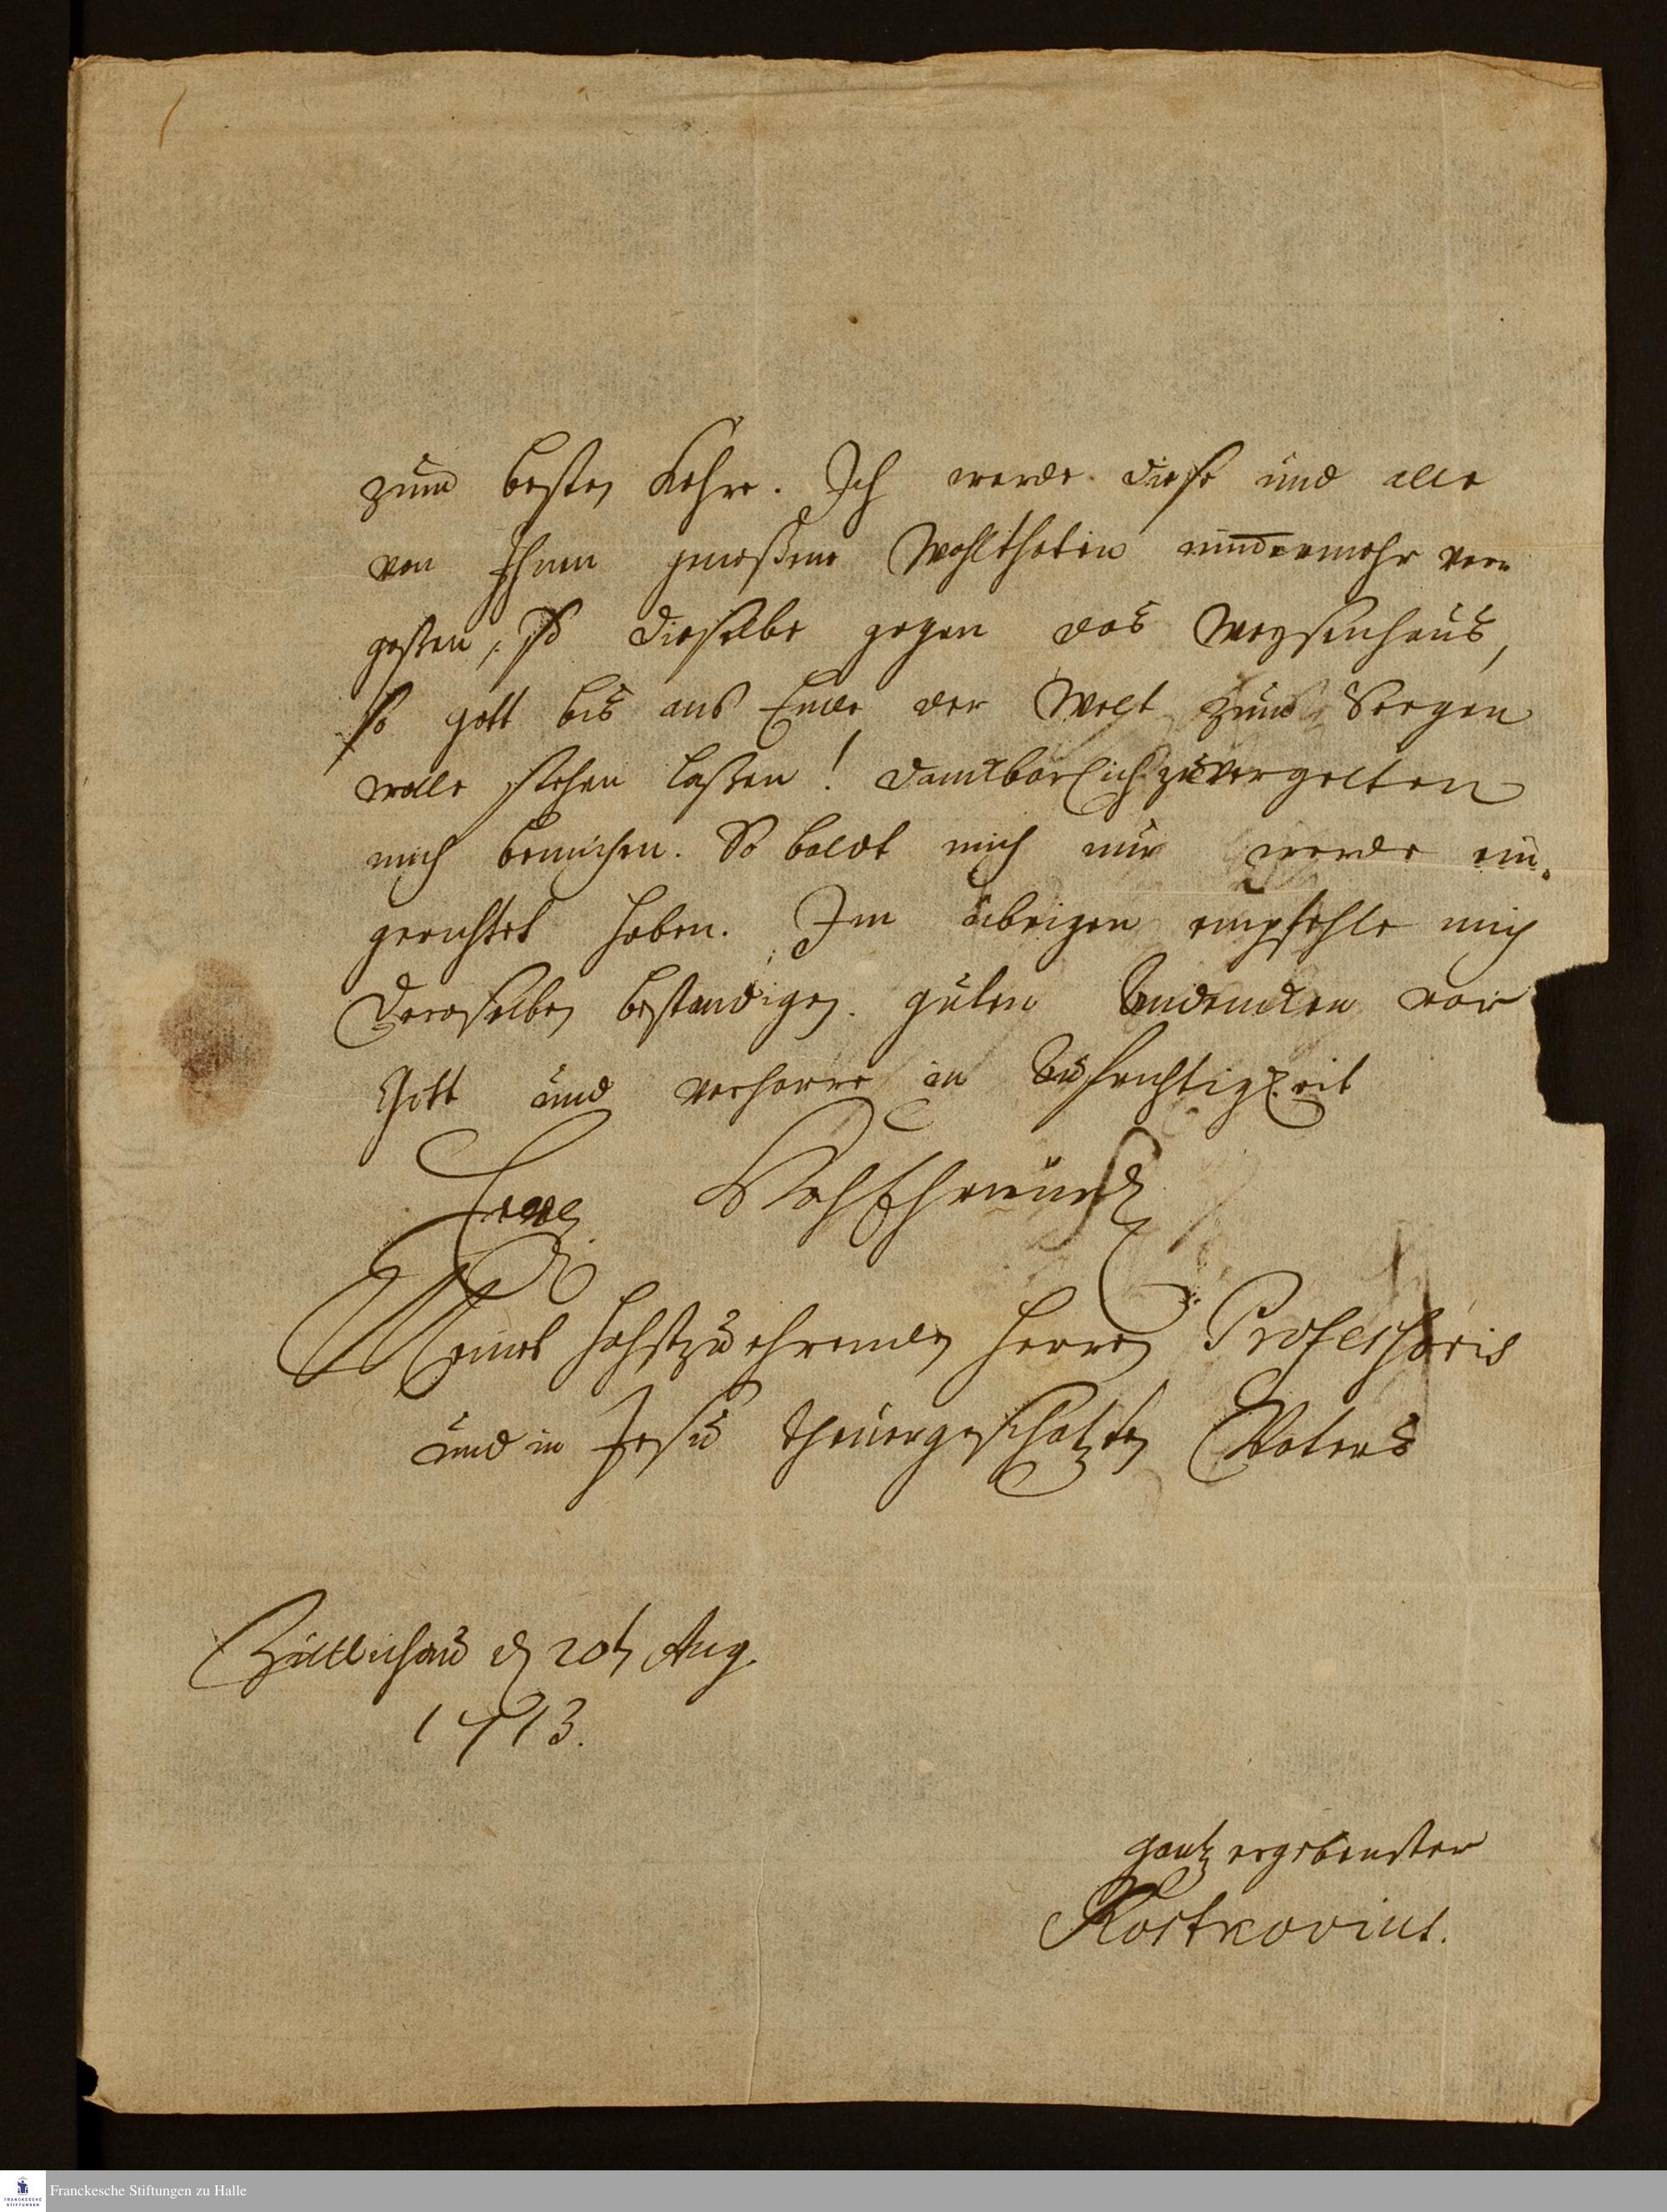 zum besten kehre. Ich werde diese und alle
von Ihnen genoßene Wohlthaten nimmermehr ver-
geßen, so dieselbe gegen das Weysenhaus,
so Gott bis ans Ende der Welt zum Seegen
wolle stehen laßen! danckbarlich zuvergelten
mich bemühen. So baldt mich nur werde ein-
gerichtet haben. Im übrigen empfehle mich
Deroselben bestandigen guten Andencken vor
Gott und verharre in Aufrichtigkeit
Ewer WohlEhrwürd
Meines hochstzuehrenden Herren Professoris
und in Jesu theuergeschatzten Vaters
Züllichau d 20t Aug.
1713.
gantz ergebenster
Kostkovius.
Franckesche Stiftungen zu Halle